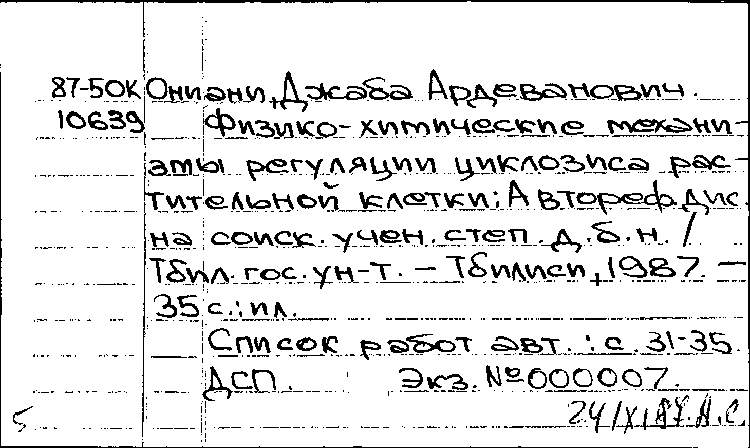 87-50К Ониани, Джаба Ардеванович.
10639 Физико-химические механи-
змы регуляции циклозиса рас-
тительной клетки: Автореф. дис.
на соиск. учен. степ. д. б. н. /
Тбил. гос. ун-т. – Тбилиси, 1987. –
35 с.: ил.
Список работ авт.: с. 31-35
ДСП. Экз. № 000007.
5 24/XI 87. А.С.